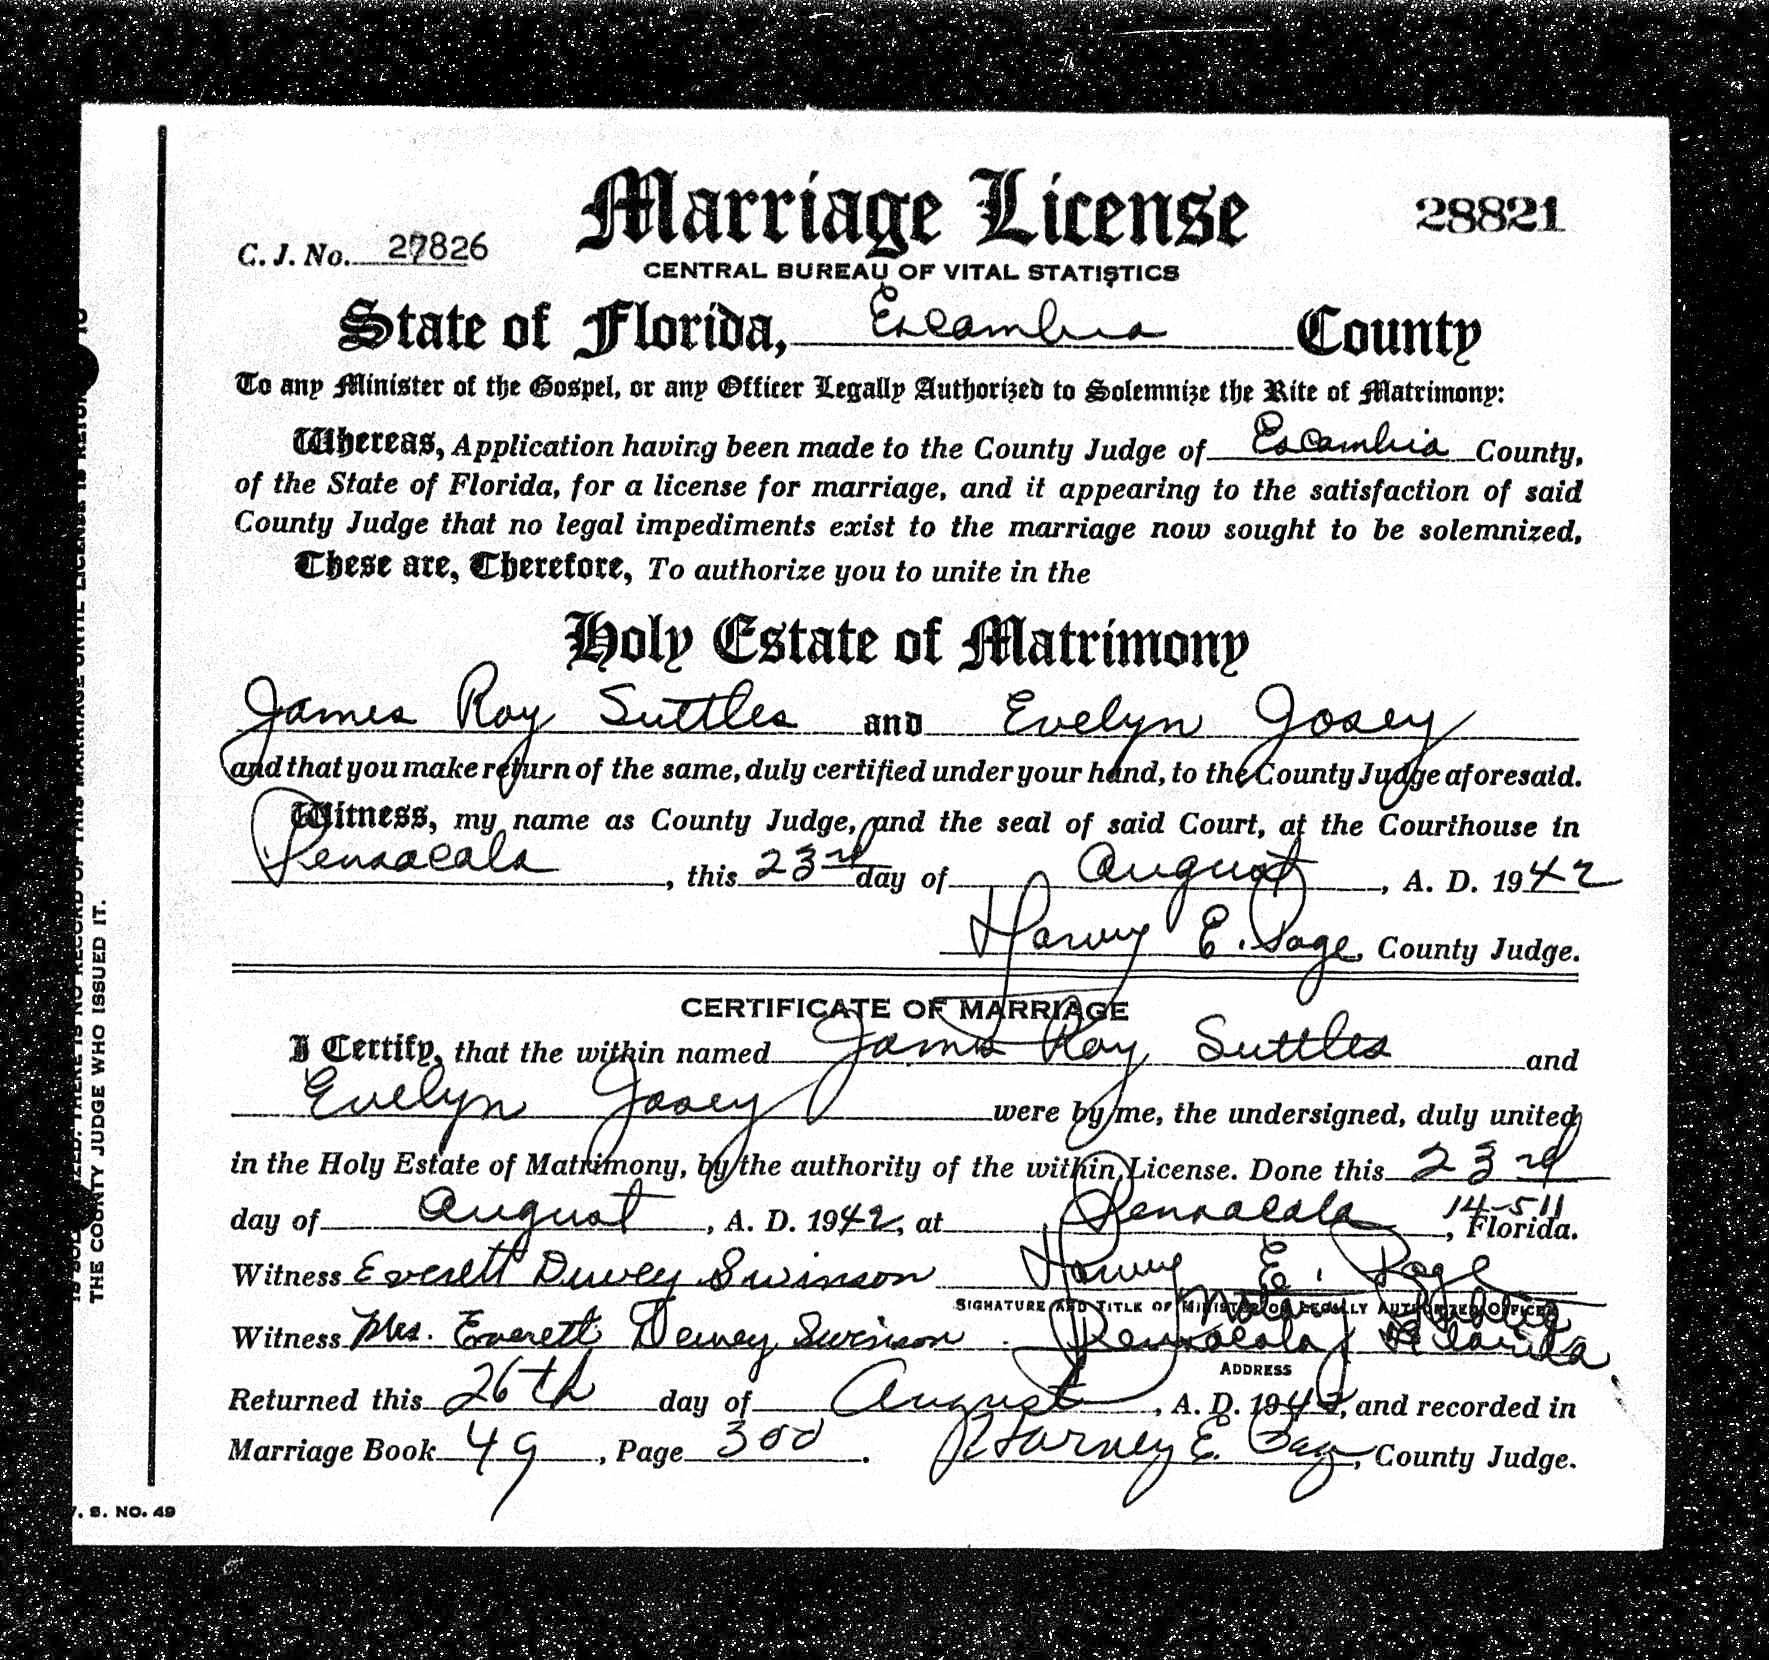 Marriage License
28821
C. J. No. 27826
CENTRAL BUREAU OF VITAL STATISTICS
State of Florida, Escambia County
To any Minister of the Gospel, or any Officer Legally Authorized to Solemnize the Rite of Matrimony:
Whereas, Application having been made to the County Judge of Escambia County,
of the State of Florida, for a license for marriage, and it appearing to the satisfaction of said
County Judge that no legal impediments exist to the marriage now sought to be solemnized,
These are, Therefore, To authorize you to unite in the
Holy Estate of Matrimony
James Roy Suttles and Evelyn Josey
and that you make return of the same, duly certified under your hand, to the County Judge aforesaid.
Witness, my name as County Judge, and the seal of said Court, at the Courthouse in
Pensacola, this 23rd day of August, A. D. 1942
Harvey E. Page, County Judge.
CERTIFICATE OF MARRIAGE
I Certify, that the within named James Roy Suttles and
Evelyn Josey were by me, the undersigned, duly united
in the Holy Estate of Matrimony, by the authority of the within License. Done this 23rd
day of August, A. D. 1942, at Pensacola, Florida.
14-511
Witness Everett Dewey Swinson Harvey E. Page
SIGNATURE AND TITLE OF MINISTER OR LEGALLY AUTHORIZED OFFICER
Witness Mrs. Everett Dewey Swinson Pensacola, Florida
ADDRESS
Returned this 26th day of August, A. D. 1942, and recorded in
Marriage Book 49, Page 300. Harvey E. Page, County Judge.
THE COUNTY JUDGE WHO ISSUED IT.
V. S. NO. 49